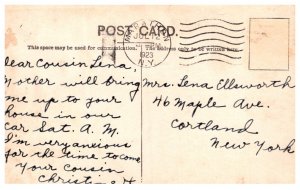 POST CARD.
This space may be used for communication. The address only to be written here.
1923
N.Y.
Dear Cousin Lena,
Mother will bring
me up to your
house in our
car Sat. A.M.
I'm very anxious
for the time to come
Your Cousin
Mrs. Lena Ellsworth
46 Maple Ave.
Cortland
New York